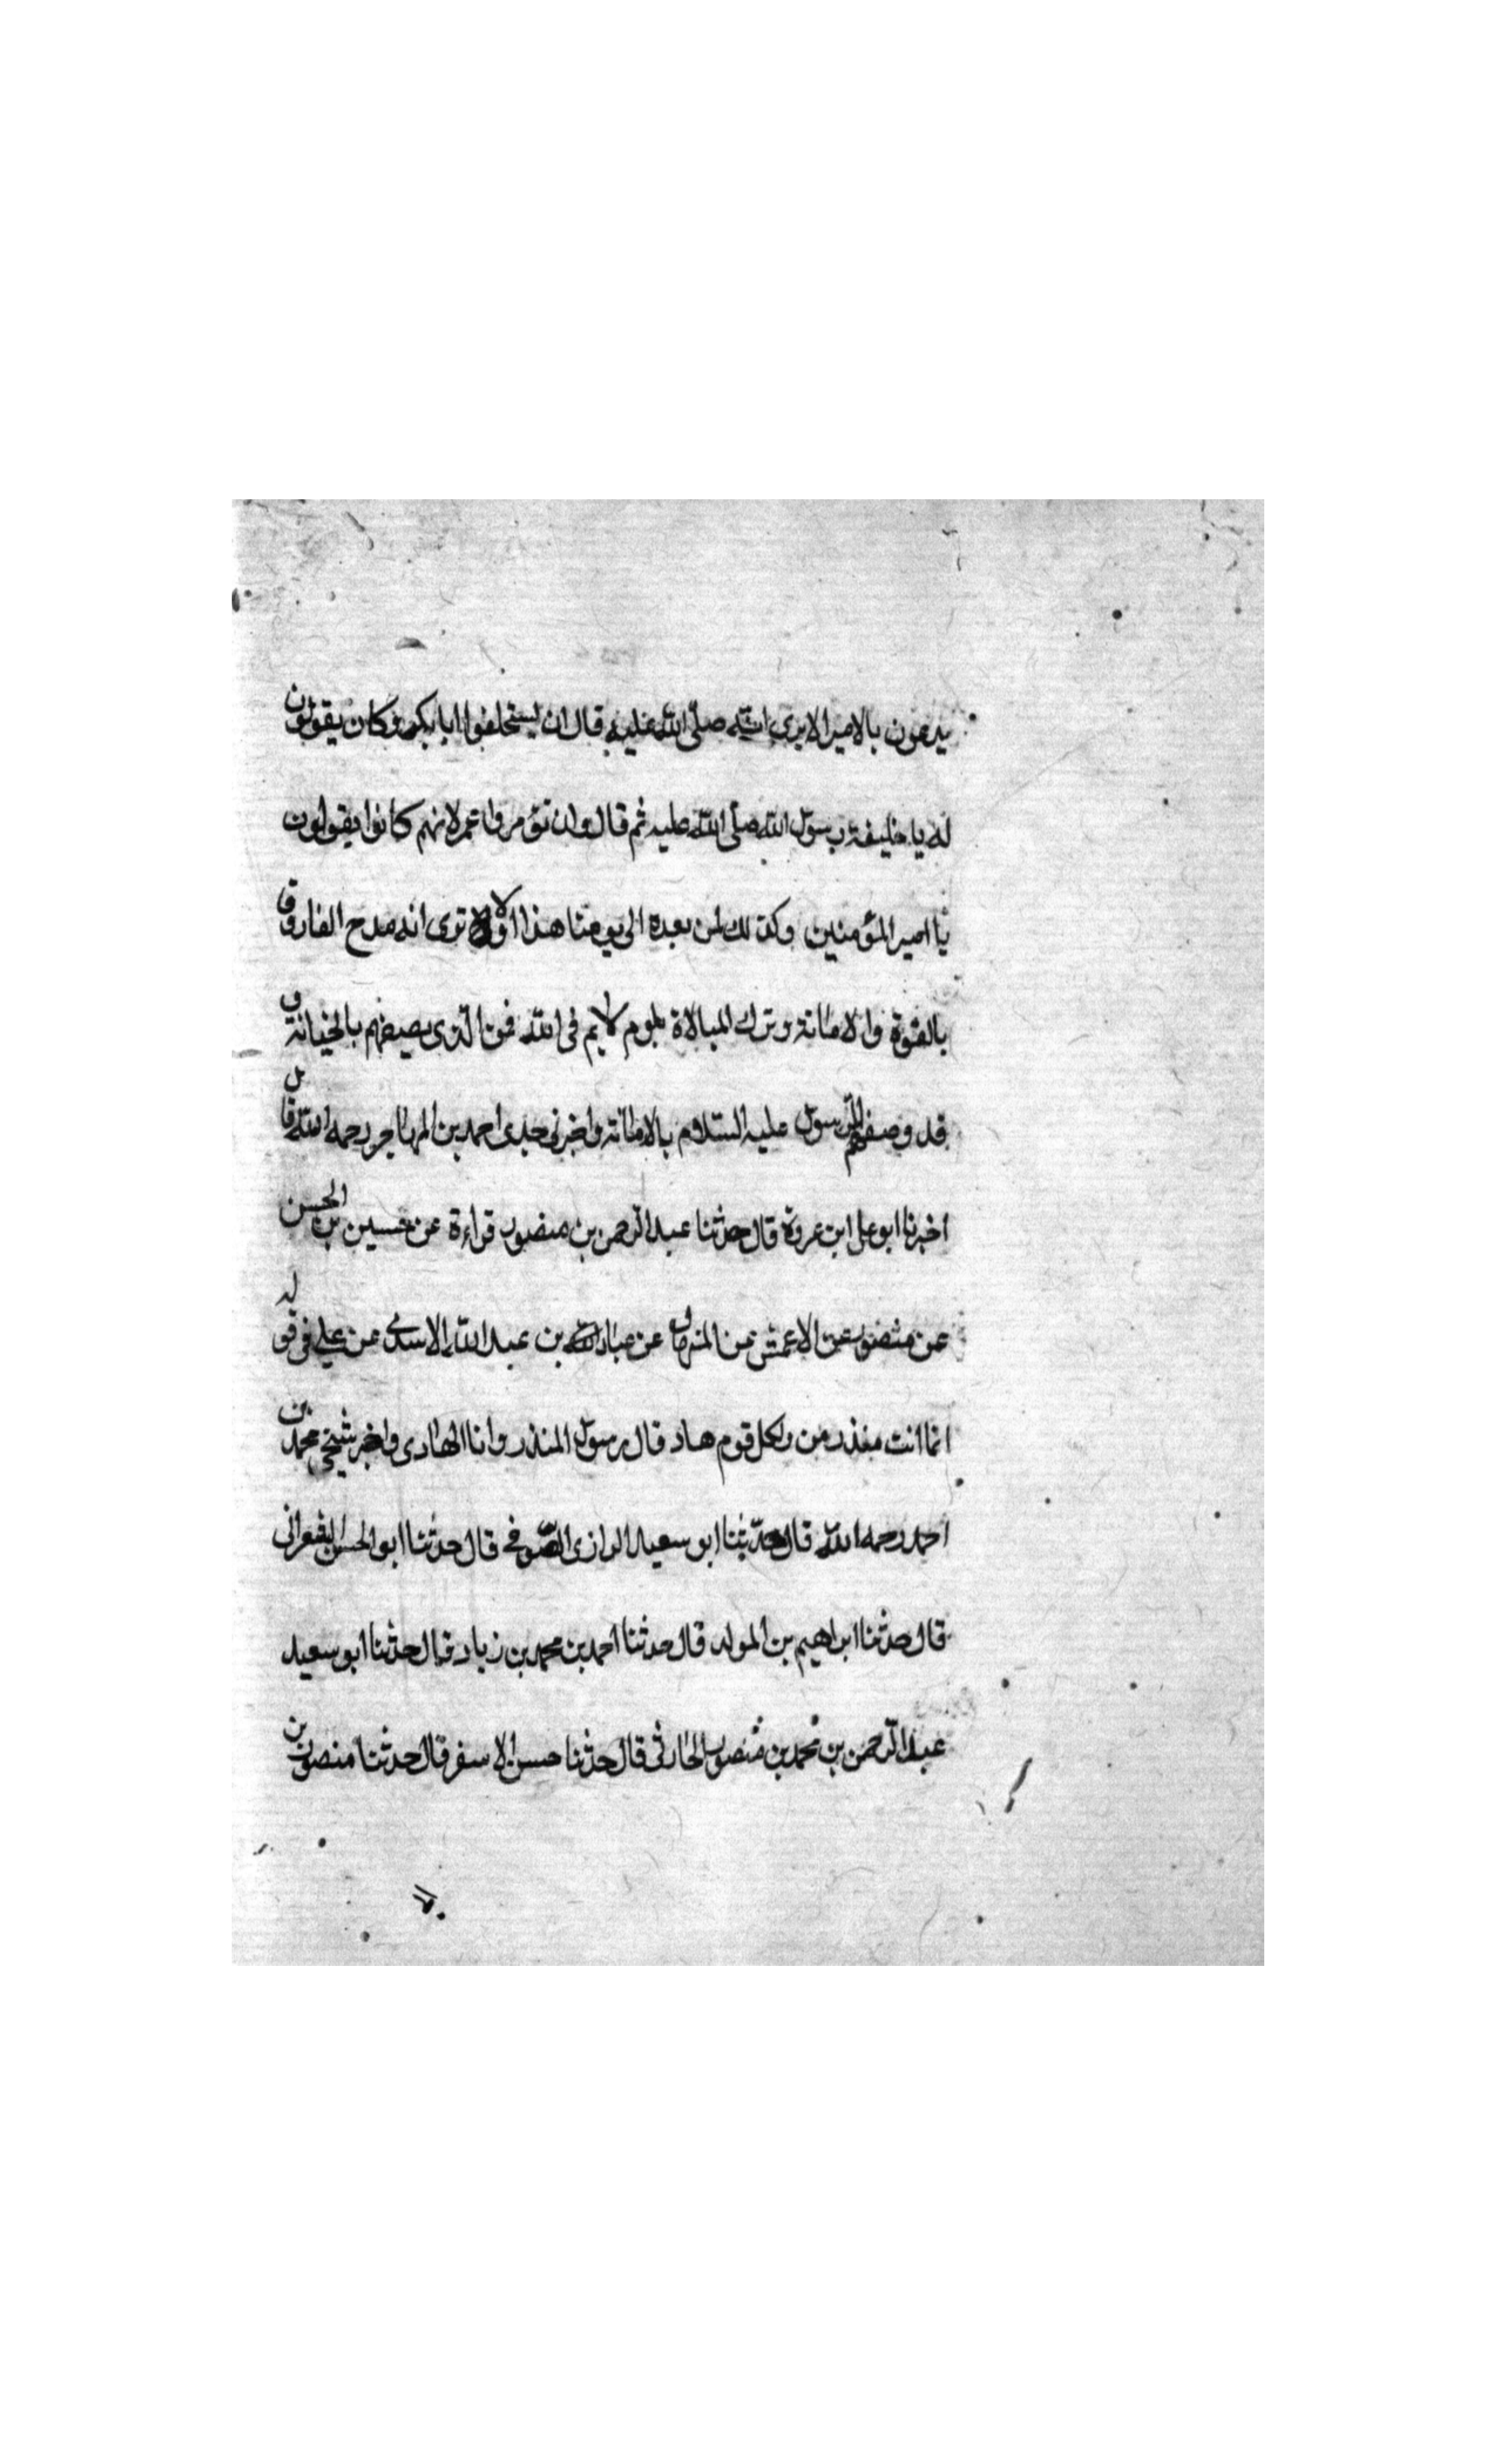 يدعون بالامير الا يرى انه صلّى الله عليه قال ان ليستخلفوا ابا بكر وكان يقولون
له يا خليفة رسول الله صلّى الله عليه ثم قال وان تؤمروا عمر لانهم كانوا يقولون
يا امير المؤمنين وكذلك لمن بعده الى يومنا هذا اولا ترى انه مدح الفاروق
بالقوة والامانة وترك المبالاة بلوم لايم فى الله فمن الّذى يصيفهم بالخيانة و
قد وصفهم الرّسول عليه السّلام بالامانة واخبرنى جدى احمد بن المهاجر رحمه الله قال
اخبرنا ابو على ابن عروة قال حدثنا عبد الرّحمن بن منصور قراءة عن حسين بن الحسن
عن منصور عن الاعمش عن المنهال عن عباد بن عبد الله الاسدى عن على فى قوله
انما انت منذر من ولكل قوم هاد قال رسول المنذر وانا الهادى واخبر شيخى محمد بن
احمد رحمه الله قال حدّثنا ابو سعيد الرازى الصّوفى قال حدثنا ابو الحسن الشعرانى
قال حدثنا ابراهيم بن المولد قال حدثنا احمد بن محمد بن زياد قال حدثنا ابو سعيد
عبد الرّحمن بن محمد بن منصور الحارثى قال حدثنا حسن الاسفر قال حدثنا منصور بن